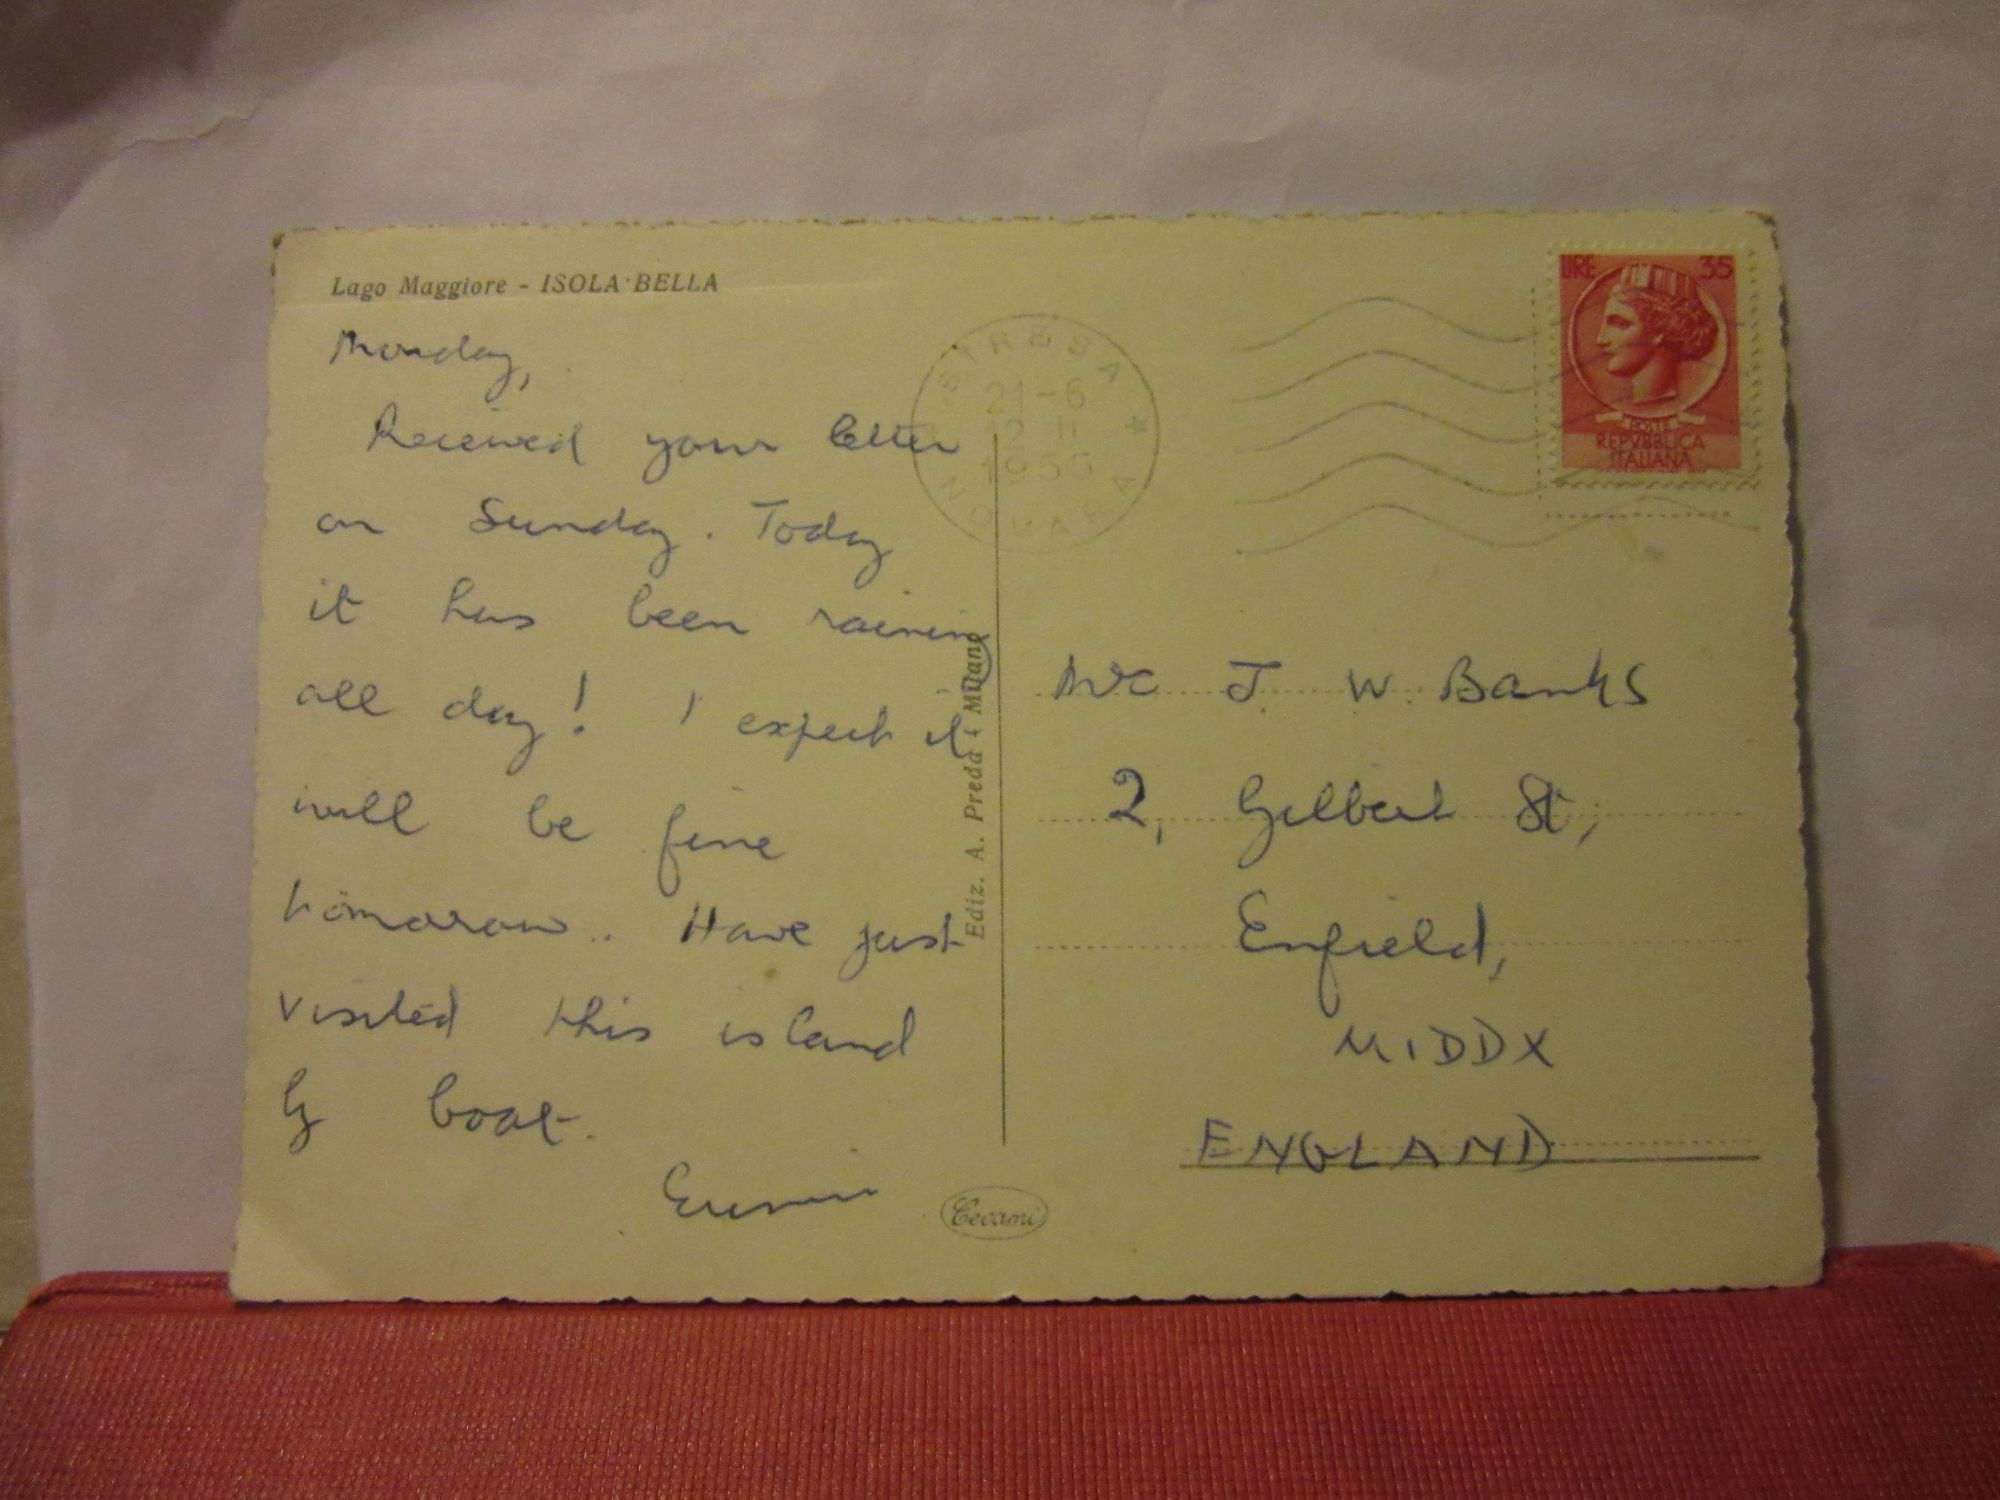 Lago Maggiore - ISOLA BELLA
Monday,
Received your letter
on Sunday. Today
it has been raining
all day! I expect it
will be fine
tomorow.. Have just
visited this island
by boat.
Ediz. A. Preda - Milano
Cecami
STRESA
21-6
12
1955
NOVARA
LIRE 35
POSTE
REPVBBLICA
ITALIANA
J. W. Banks
2, Gilbert St,
Enfield,
MIDDX
ENGLAND